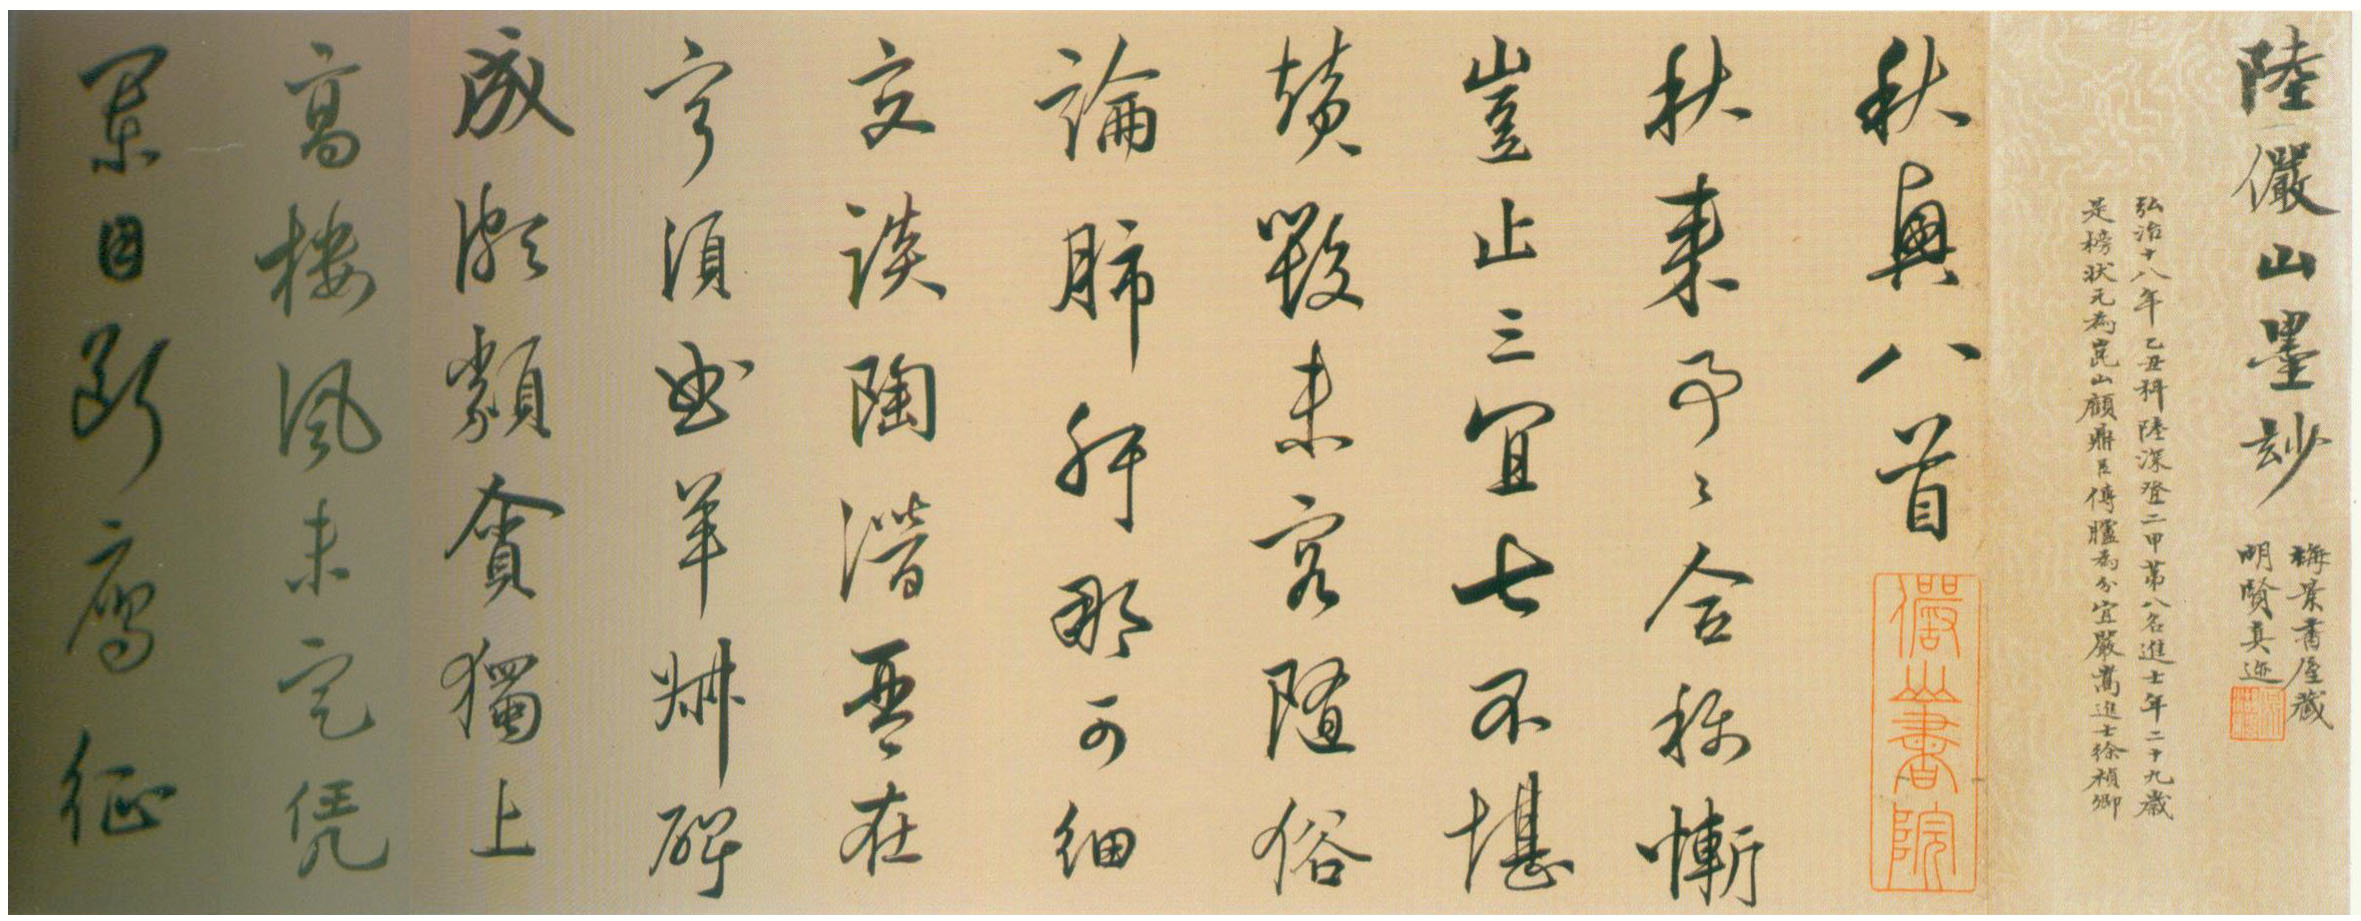 陸儼山墨妙
梅景書屋藏
明賢真迹
弘治十八年乙丑科陸深登二甲第八名進士年二十九歲
是榜狀元為崑山顧鼎臣傳臚為分宜嚴嵩進士徐禎卿
秋興八首
儼山書院
秋來事〻合稱慚
豈止三宜七不堪
鬢未容隨俗
論肺肝那可細
交談陶潛吾在
寧須羊叔碑
成瀨類會獨上
高樓風未定凭
闌目斷鴈征